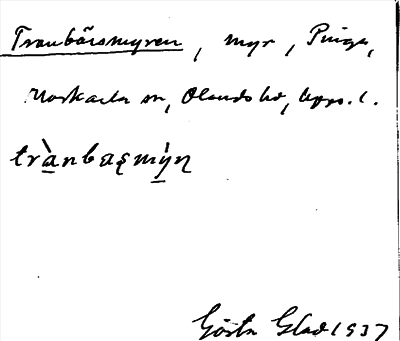 Tranbärsmyren, myr, Pinga,
Morkarla sn, Olands hd, Upps. l.
trànbasmýn
Gösta Glad 1937